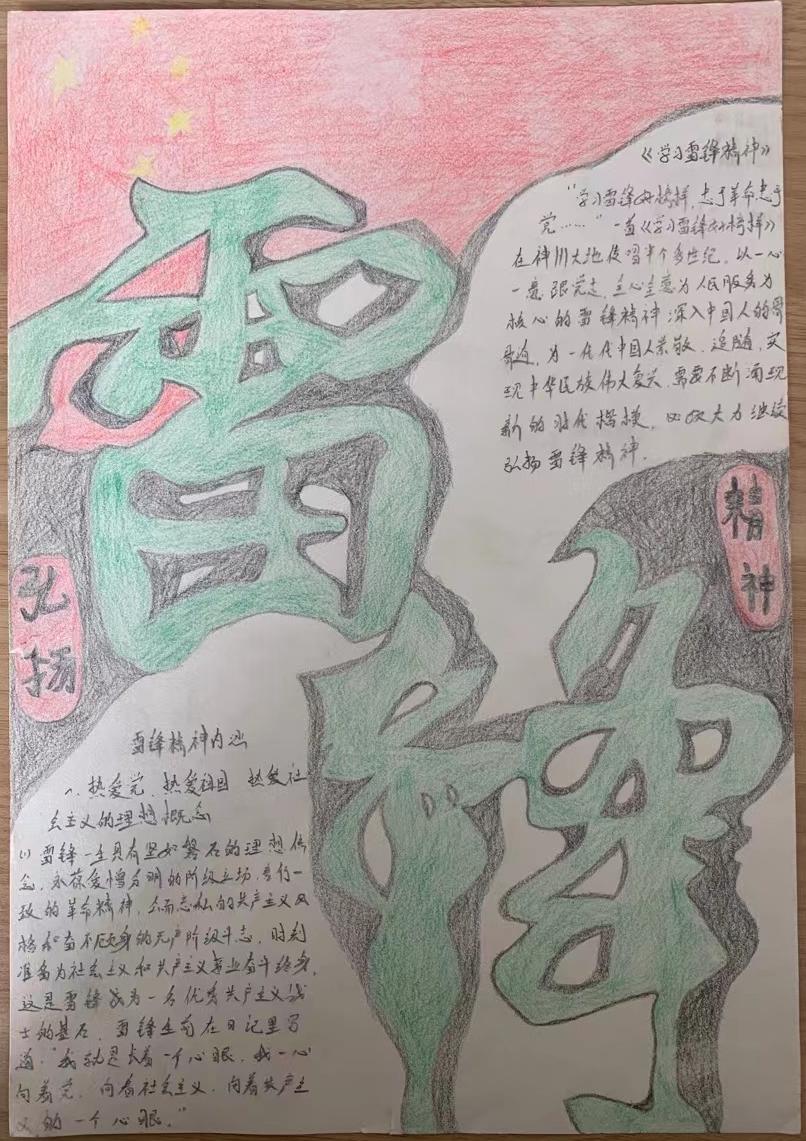 《学习雷锋精神》
"学习雷锋好榜样，忠于革命忠于
党……"一首《学习雷锋好榜样》
在神州大地传唱半个多世纪，以一心
一意跟党走，全心全意为人民服务为
核心的雷锋精神深入中国人的骨
髓，为一代代中国人崇敬、追随，实
现中华民族伟大复兴，需要不断涌现
新的时代楷模，必须大力继续
弘扬雷锋精神。
雷锋
精神
弘扬
雷锋精神内涵
一、热爱党、热爱祖国 热爱社
会主义的理想概念
(1) 雷锋一生具有坚如磐石的理想信
念，永葆爱憎分明的阶级立场，言行一
致的革命精神，公而忘私的共产主义风
格和奋不顾身的无产阶级斗志，时刻
准备为社会主义和共产主义事业奋斗终身，
这是雷锋成为一名优秀共产主义战
士的基石，雷锋生前在日记里写
道："我就是长着一个心眼，我一心
向着党，向着社会主义，向着共产主
义的一个心眼。"